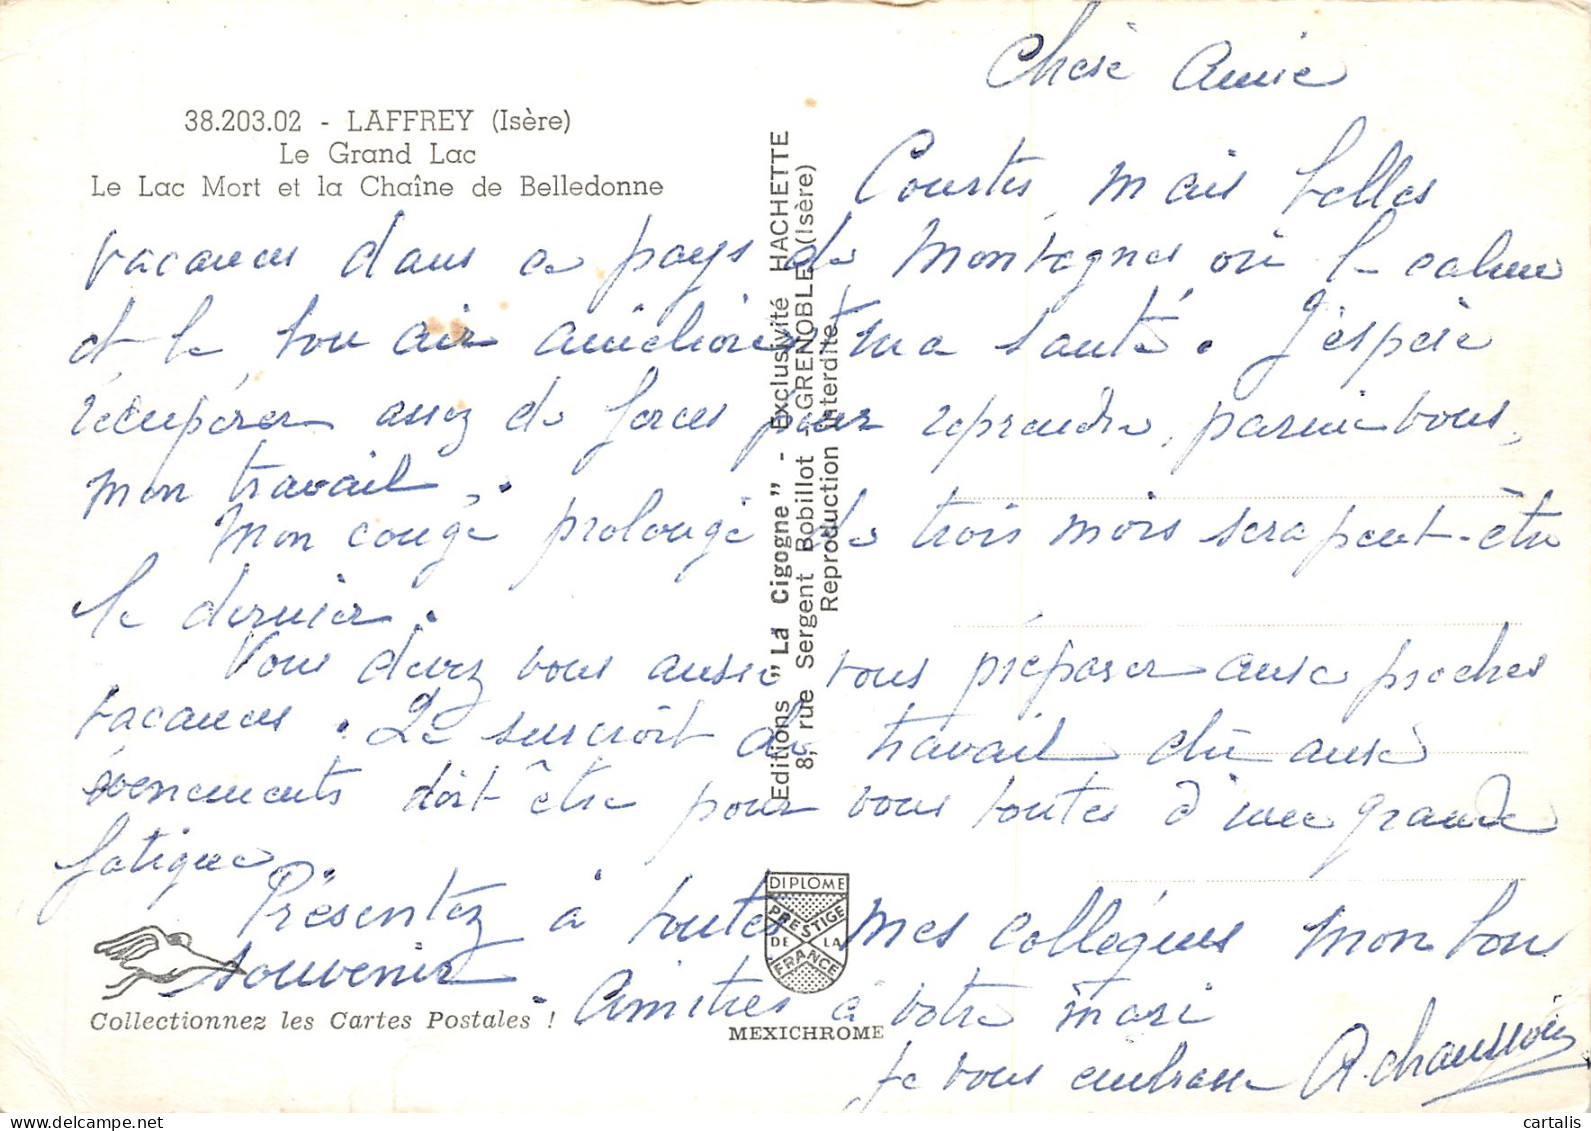 38.203.02 - LAFFREY (Isère)
Le Grand Lac
Le Lac Mort et la Chaîne de Belledonne
Chère Amie
Courtes, mais belles
vacances dans ce pays de montagnes où le calme
et le bon air améliorent ma santé. J'espère
récupérer assez de forces pour reprendre, parmi vous,
mon travail.
Mon congé prolongé de trois mois sera peut-être
le dernier.
Vous devez vous aussi vous préparer aux proches
vacances. Le surcroît de travail dû aux
évènements doit être pour vous toutes d'une grande
fatigue.
Présentez à toutes mes collègues mon bon
souvenir. Amitiés à votre mari
Je vous embrasse A. Chaussoin
Editions "La Cigogne" - Exclusivité HACHETTE
8, rue Sergent Bobillot - GRENOBLE (Isère)
Reproduction Interdite
DIPLOME
PRESTIGE
DE LA
FRANCE
Collectionnez les Cartes Postales !
MEXICHROME
cartalis